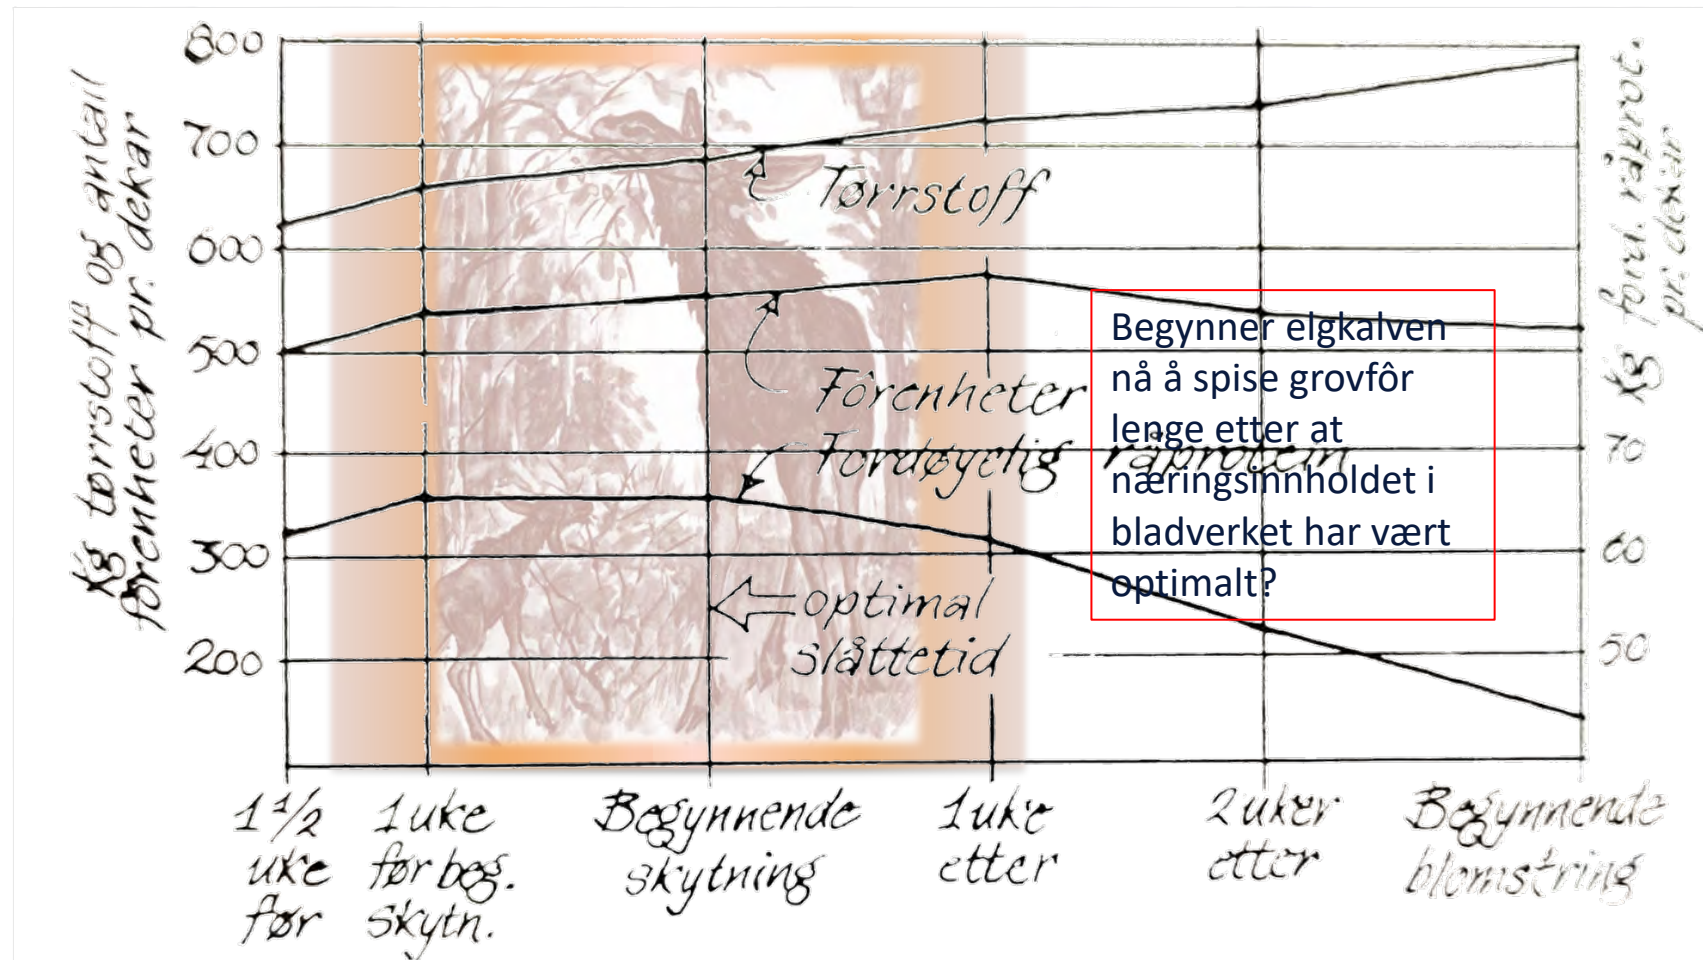 800
700
600
500
400
300
200
Kg tørrstoff og antall
fôrenheter pr. dekar
Tørrstoff
Fôrenheter
Fordøyelig råprotein
optimal
slåttetid
Begynner elgkalven
nå å spise grovfôr
lenge etter at
næringsinnholdet i
bladverket har vært
optimalt?
Kg ford. råprot.
pr. dekar
70
60
50
1 1/2
uke
før
1 uke
før beg.
skytn.
Begynnende
skytning
1 uke
etter
2 uker
etter
Begynnende
blomstring